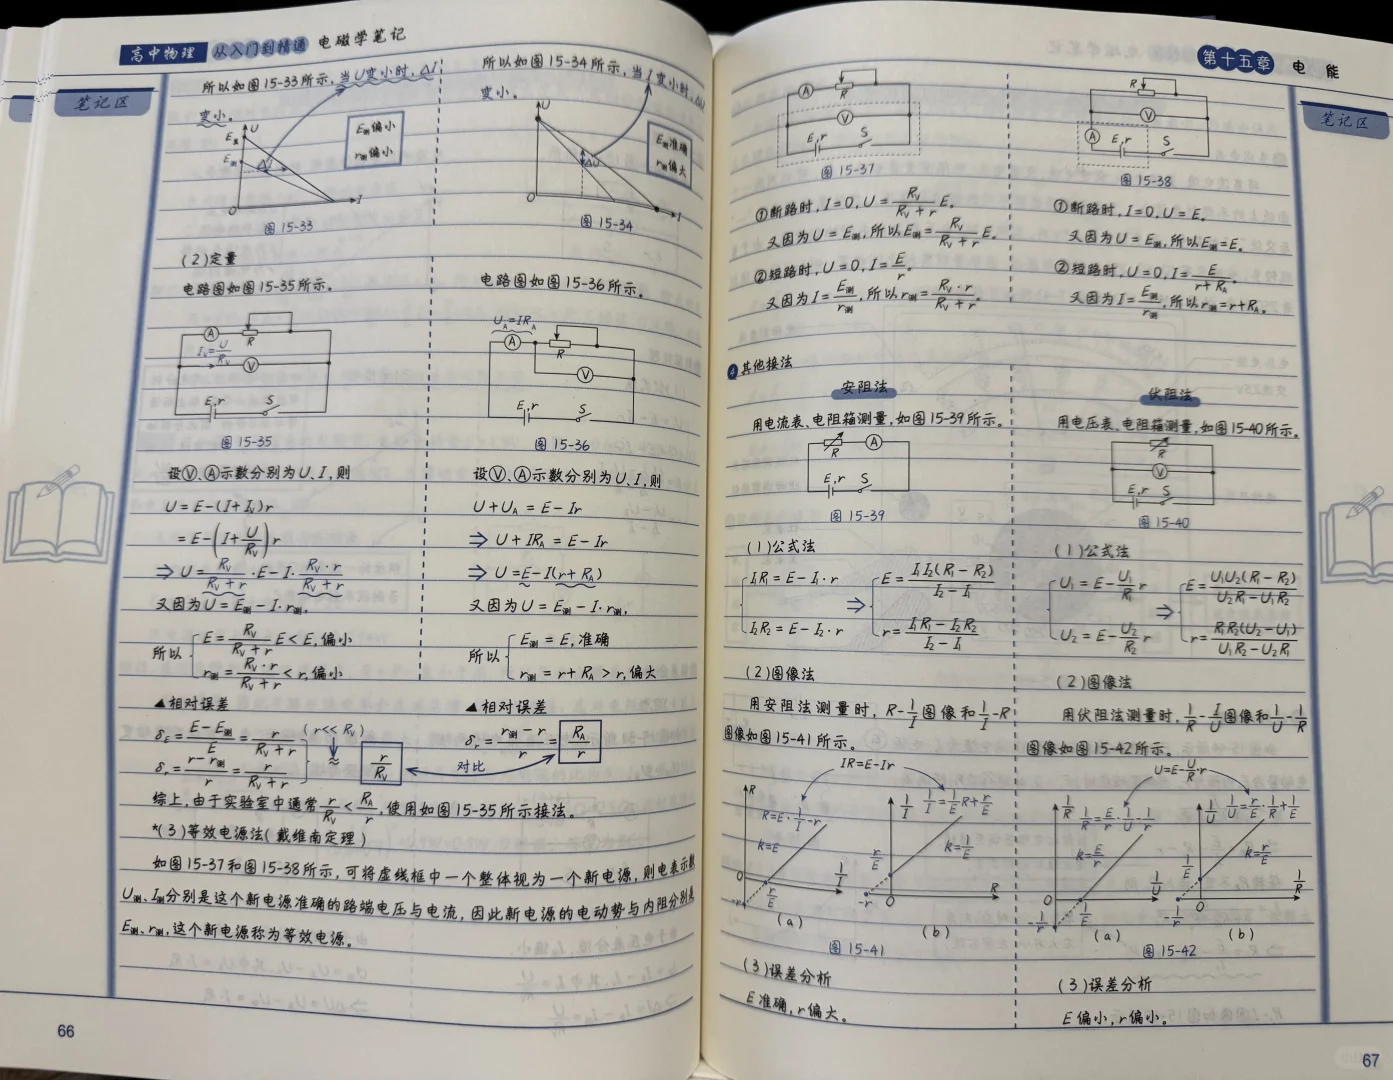 高中物理 从入门到精通 电磁学笔记
笔记区
所以如图15-33所示，当U变小时，ΔI
变小。
U
E真
E测
ΔI
O
I
E测偏小
r测偏小
图15-33
所以如图15-34所示，当I变小时，ΔU
变小。
U
ΔU
O
I
E测准确
r测偏大
图15-34
(2)定量
电路图如图15-35所示。
A
R
I_V=U/R_V
V
E,r
S
图15-35
设Ⓥ、Ⓐ示数分别为U、I，则
U=E-(I+I_V)r
=E-(I+U/R_V)r
⇒U=R_V/(R_V+r)·E-I·R_V·r/(R_V+r)
又因为U=E测-I·r测，
所以
E=R_V/(R_V+r) E<E，偏小
r测=R_V·r/(R_V+r)<r，偏小
▲相对误差
δ_E=(E-E测)/E=r/(R_V+r)
δ_r=(r-r测)/r=r/(R_V+r)
(r<<R_V)
≈
r/R_V
对比
电路图如图15-36所示。
U_A=IR_A
A
R
V
E,r
S
图15-36
设Ⓥ、Ⓐ示数分别为U、I，则
U+U_A=E-Ir
⇒U+IR_A=E-Ir
⇒U=E-I(r+R_A)
又因为U=E测-I·r测，
所以
E测=E，准确
r测=r+R_A>r，偏大
▲相对误差
δ_r=(r测-r)/r=R_A/r
综上，由于实验室中通常r/R_V<R_A/r，使用如图15-35所示接法。
*(3)等效电源法(戴维南定理)
如图15-37和图15-38所示，可将虚线框中一个整体视为一个新电源，则电表示数
U测、I测分别是这个新电源准确的路端电压与电流，因此新电源的电动势与内阻分别是
E测、r测，这个新电源称为等效电源。
66
第十五章 电 能
笔记区
A
R
V
E,r
S
图15-37
①断路时，I=0，U=R_V/(R_V+r) E。
又因为U=E测，所以E测=R_V/(R_V+r) E。
②短路时，U=0，I=E/r。
又因为I=E测/r测，所以r测=R_V·r/(R_V+r)。
R
V
A
E,r
S
图15-38
①断路时，I=0，U=E。
又因为U=E测，所以E测=E。
②短路时，U=0，I=E/(r+R_A)。
又因为I=E测/r测，所以r测=r+R_A。
4 其他接法
安阻法
用电流表、电阻箱测量，如图15-39所示。
R
A
E,r
S
图15-39
(1)公式法
I₁R₁=E-I₁·r
I₂R₂=E-I₂·r
⇒
E=I₁I₂(R₁-R₂)/(I₂-I₁)
r=(I₁R₁-I₂R₂)/(I₂-I₁)
(2)图像法
用安阻法测量时，R-1/I图像和1/I-R
图像如图15-41所示。
IR=E-Ir
R
R=E·1/I-r
k=E
O
-r
r/E
1/I
(a)
1/I
1/I=1/E R+r/E
k=1/E
r/E
-r
O
R
(b)
图15-41
(3)误差分析
E准确，r偏大。
伏阻法
用电压表、电阻箱测量，如图15-40所示。
R
V
E,r
S
图15-40
(1)公式法
U₁=E-U₁/R₁ r
U₂=E-U₂/R₂ r
⇒
E=U₁U₂(R₁-R₂)/(U₂R₁-U₁R₂)
r=R₁R₂(U₂-U₁)/(U₁R₂-U₂R₁)
(2)图像法
用伏阻法测量时，1/R-1/U图像和1/U-1/R
图像如图15-42所示。
U=E-U/R·r
1/R
1/R=E/r·1/U-1/r
k=E/r
O
-1/r
1/E
1/U
(a)
1/U
1/U=r/E·1/R+1/E
k=r/E
1/E
-1/r
O
1/R
(b)
图15-42
(3)误差分析
E偏小，r偏小。
67